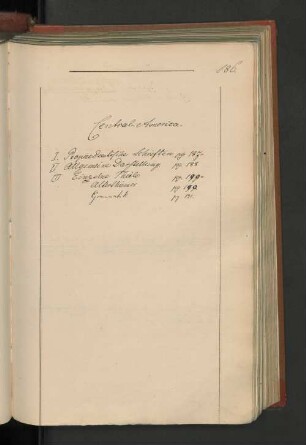 186
Central-America
I. Propaedeutische Schriften pg. 187.
II Allgemeine Darstellung pg. 188
III Einzelne Theile pg. 190.
Alterthümer pg. 190
pg.